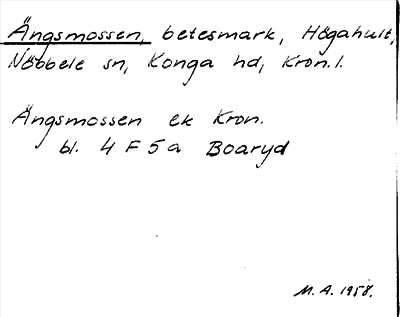 Ängsmossen, betesmark, Högahult,
Nöbbele sn, Konga hd, Kron. l.
Ängsmossen ek Kron.
bl. 4 F 5 a Boaryd
M. A. 1958.